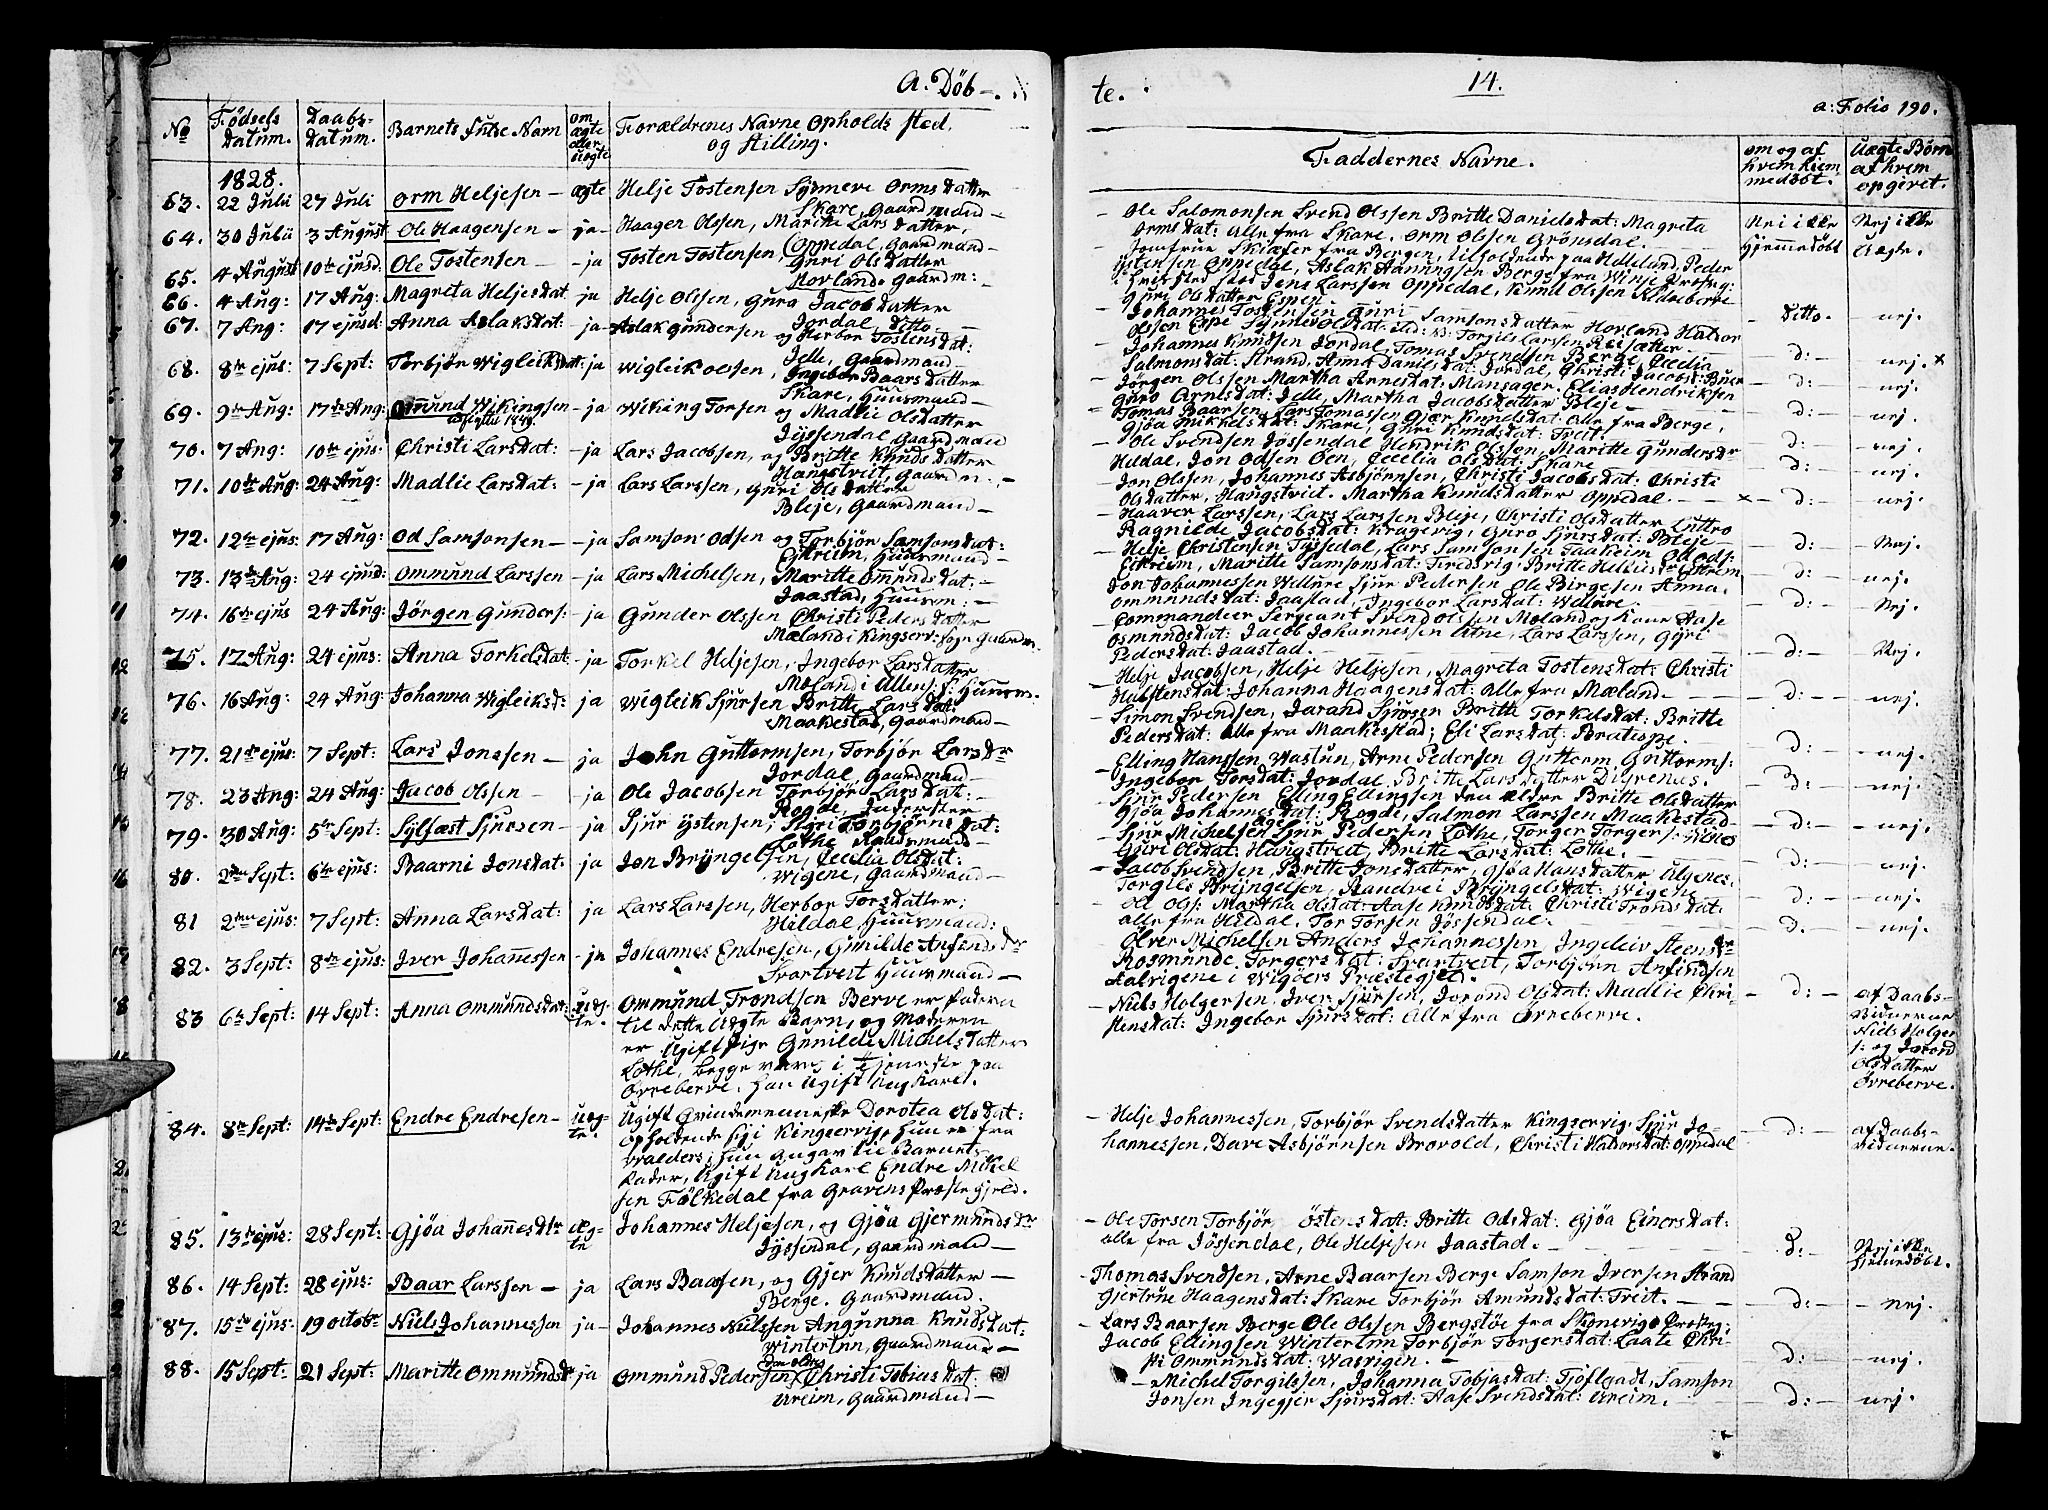 A. Döb–
No
Fødsels Datum.
Daabs-Datum.
Barnets fulde Navn
om ægte eller uægte
Forældrenes Navne Opholds sted.
og Stilling.
1828.
63. 22 Juli 27 Juli Orm Heljesen – ægte Helje Tostensen Synneve Orms datter
Skare, Gaardmand –
64. 30 Julii 3 August Ole Haagensen – ja – Haagen Olsen, Maritte Lars datter,
Oppedal, Gaardmand –
65. 4 August 10de ejusd. Ole Tostensen – – ja Tosten Tostensen, Guri Ols datter
Hovland, Gaardm:
66. 4 Aug: 17 Aug: Magreta Heljesdat. ja Helje Olssen, Guro Jacobsdatter
Jordal, ditto –
67. 7 Aug: 17 ejusd: Anna Aslaksdat: – ja – Aslak Gundersen og Herbor Tostensdat:
Jelle, Gaardmand
68. 8de ejus: 7 Sept: Torbjør Wigleiksdat: ja Wigleik Olssen, Ingebor Baars datter
Skare, Huusmand –
69. 9de Aug: 17de Aug: Omund Wikingsen – ja Wiking Torsen og Madlie Olsdatter
Jyssendal Gaardmand
70. 7 Aug: 10de ejus: Christi Larsdat: – ja Lars Jacobsen, og Britte Knuds datter
Hangstveit, Gaardm. –
71. 10de Aug: 24 Aug: Madlie Larsdat: – ja Lars Larssen, Guri Olsdatter
Bleje, Gaardmand –
72. 12te ejus: 17 Aug: Od Samsonsen – – ja Samson Odsen og Torbjør Samsonsdat:
Eikreim, Huusmand –
73. 13de Aug: 24 ejusd: Ommund Larssen – ja Lars Michelsen, Maritte Omundsdat: –
Jaastad, Huusm: –
74. 16de ejus 24 Aug: Jörgen Gunders: – ja Gunder Olssen Christi Peders datter
Mæland i Kingserv: Sogn Gaardm.
75. 17 Aug: 24 ejus: Anna Torkelsdat: – ja Torkel Heljesen, Ingebor Larsdatter
Mæland i Ullens: S: Huusm.
76. 16 Aug: 24 Aug: Johanna Wigleiksd: ja Wigleik Sjursen Britte Lars dat:
Maakestad, Gaardmand –
77. 21de ejus: 7 Sept: Lars Jonssen – ja John Guttormsen, Torbjør Larsdr
Jordal, Gaardmand –
78. 23 Aug: 24 Aug: Jacob Olssen – – ja Ole Jacobsen Torbjør Larsdat: –
Rogde, Inderster
79. 30 Aug: 5te Sept: Sylfæst Sjursen – ja Sjur Ystensen, Sigri Torbjørns dat:
Lothe Gaardmand –
80. 2den Sept: 6te ejus: Baarni Jonsdat: ja Jon Bryngelsen, Cecelia Olsdat:
Wigene, Gaardmand –
81 2den ejus: 7 Sept: Anna Larsdat: ja Lars Larssen, Herbor Torsdatter;
Hildal Huusmand:
82. 3 Sept: 8de ejus: Iver Johanessen – ja Johannes Endresen, Gunilde Anfinds dr
Svartveit Huusmand –
83 6te Sept: 14 Sept: Anna Ommundsdat: uæg-te. Ommund Trondsen Berve er faderen
til dette Uægte Barn, og Moderen
er Ugift Pige Gunilde Michels datter
Lothe, begge vare i tjeneste paa
Övreberve. Han Ugift Ungkarl.
84. 8de Sept: 14de Sept: Endre Endresen – uæg-te. Ugift Qvindemenneske Dorotea Olsdat:
opholdende sig i Kingservig, hun er fra
Walders; hun angav til Barnets
Fader, Ugift Ungkarl Endre Mikel
sen Fölkedal fra Gravens Præstegjeld.
85. 13de ejus: 28 Sept: Gjöa Johanesdtr æg-te Johannes Heljesen, og Gjöa Gjermunds dr
Jyssendal, Gaardmand –
86. 14 Sept: 28 ejus: Baar Larssen – ja Lars Baarsen, og Gjer Knudsdatter –
Berge. Gaardmand.
87. 15de ejus: 19 octobr Niels Johannessen ja – Johannes Nielssen Angunna Knudsdat:
Wintertun, Gaardmand –
88. 15 Sept: 21 Sept: Maritte Ommundsdt ja Ommund Pedersen Christi Tobias dat:
Areim, Gaardmand –
te.
14.
a: Folio 190.
Faddernes Navne.
om og af hvem hiemmedöbt.
Uægte Börn af hvem opgivet.
– Ole Salomonsen Svend Olssen Britte Danielsdat: Magreta
Ormsdat: Alle fra Skare. Orm Olssen Grönsdal.
Nei ikke hjemmedöbt
Nej ikke Uægte.
– Johannes Knudsen Jordal, Tomas Svendsen Berge, Cecelia
Salmonsdat: Strand, Anna Danielsdat: Jordal, Christi Jacobsd: Buer
– Jörgen Olssen Martha Arnesdat: Mansager. Elias Hendriksen
Guro Arnesdat: Jelle, Martha Jacobsdatter Bleje –
– Tomas Baarsen, Lars Tomassen Gjær Knudsdat: Alle fra Berge,
Gjöa Mikkelsdat: Skare, Guri Knudsdat: Freit.
– Ole Svendsen Jössendal Hendrik Olssen, Maritte Gundersdr
Hildal, Jon Odsen Öen, Cecelia Olsdat: Skare
– Jon Olssen, Johannes Asbjörnsen, Christi Jacobsdat: Christi
Olsdatter, Hangstveit. Martha Knudsdatter Oppedal. –
– Haaver Larssen, Lars Larssen Bleje, Christi Olsdatter Luttro
Ragnilde Jacobsdat: Kragevig, Guro Sjursdat: Bleje –
– Helje Christensen Tyssedal, Lars Samsonsen Jaakeim Od Ods:
Eikreim, Maritte Samsonsdat:
Jon Johannessen Wellure Sjur Pedersen Ole Birgesen Anna
Ommundsdat: Jaastad, Ingebor Larsdat: Wellure. –
– Commandeer Sergeant Svend Olssen Moland og Kone Aase
Osmundsdat: Jacob Johannessen Utne, Lars Larssen, Gyri
Pedersdat: Jaastad. –
– Helje Jacobsen, Helje Heljesen, Magreta Tostensdat: Christi
Halstensdat: Johanna Haagensdat: alle fra Mæland. –
– Simon Svendsen, Jarand Sjursen Britte Torkelsdat: Britte
Pedersdat: alle fra Maakestad; Eli Larsdat: Bratespe.
– Elling Hanssen Wastun, Arne Pedersen Guttorm Guttorms:
Ingebor Torsdat: Jordal, Britte Larsdatter Digrenæs.
– Sjur Pedersen Elling Ellingsen den ældre Britte Olsdatter
Gjöa Johannesdat: Rogde, Salmon Larssen Maakestad –
– Sjur Michelsen Sjur Pedersen Lothe, Torger Torgers:
Guri Olsdat: Hangstveit, Britte Larsdat: Lothe. –
– Jacob Svendsen, Britte Jonsdatter, Gjöa Hansdatter: Algenes.
Torgils Bryngelsen, Randvei Bryngelsdat: Wigene
– Ol Ols: Martha Olsdat: Aase Knudsdat: Christi Tronds dat:
alle fra Hildal. Tor Torsen Jössendal. –
– Olver Michelsen Anders Johannessen Ingeleiv Steens dr
Rosmunde Torgersdat: Svartveit, Torbjörn Anfindsen
Aalvigene i Wigöers Præstegjeld.
– Niels Holgersen, Iver Sjursen, Jorond Olsdat: Madlie Chri-
stensdat: Ingebor Sjursdat: Alle fra Övreberve.
– d: –
af Daabs-
Vidnerne
Niels Holger
s: og Jorond
Olsdatter
Övreberve.
– Helje Johannessen, Torbjör Svendsdatter Kingservig. Sjur Jo-
hannessen, Dave Asbjörnsen Brovold, Christi Haldorsdat: Oppedal
– d: –
af Daabs-
Vidnerne.
– Ole Torsen Torbjör Östensdat: Britte Odsdat: Gjöa Einersdat:
alle fra Jössendal, Ole Heljesen Jaastad. –
d: –
Nej ikke
hjemmedöbt.
– Thomas Svendsen, Arne Baarsen Berge Samson Iversen Strand
Gjertrue Haagensdat: Skare Torbjör Amundsdat: Freit. –
– d: –
– nej.
– Lars Baarsen Berge Ole Olssen Bergstöe fra Skonevigs Præstg:
Jacob Ellingsen Wintertun Torbjör Torgersdat: Laate Chri-
sti Ommundsdat: Wasvigen. –
d: –
– nej.
– Michel Torgilssen, Johanna Tobjasdat: Tjöflgadt, Samson
Jonsen Ingegjer Sjursdat: Aase Svendsdat: Areim. –
– d: –
– nej.